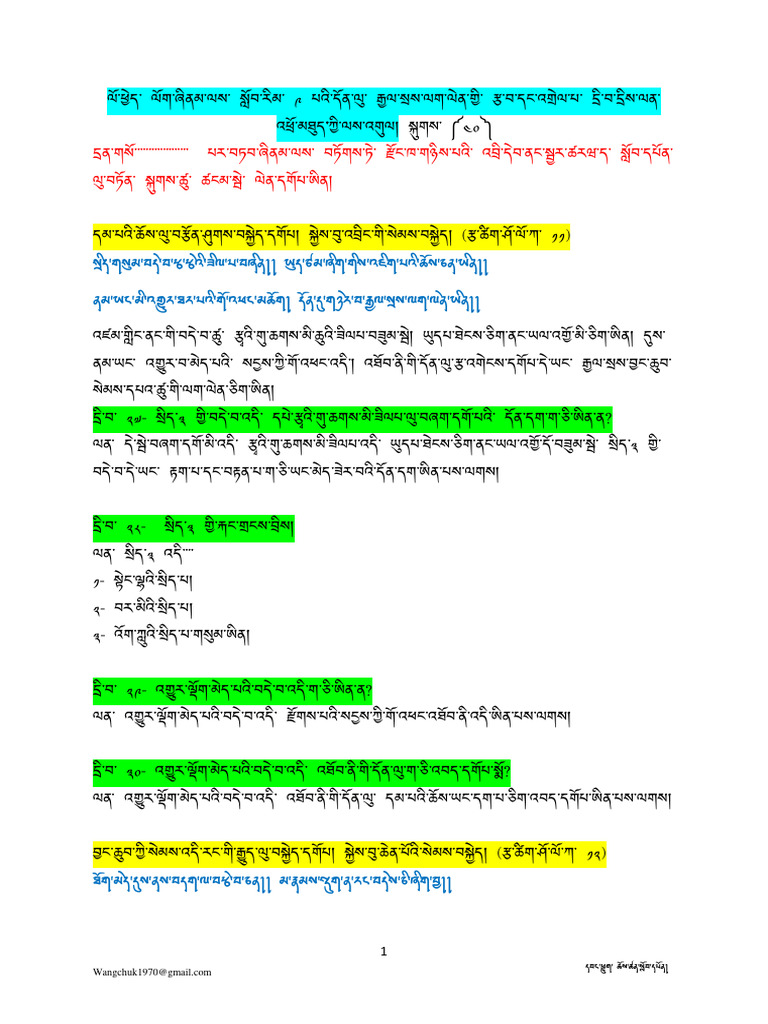 ལོ་ཕྱེད་ ལོག་ཞིནམ་ལས་ སློབ་རིམ་ ༩ པའི་དོན་ལུ་ རྒྱལ་སྲས་ལག་ལེན་གྱི་ རྩ་བ་དང་འགྲེལ་པ་ དྲི་བ་དྲིས་ལན་
འཕྲོ་མཐུད་ཀྱི་ལས་འགུལ། སྐུགས་ ༼༤༠༽
དྲན་གསོ་................... པར་བཏབ་ཞིནམ་ལས་ བཏོགས་ཏེ་ རྫོང་ཁ་གཉིས་པའི་ འབྲི་དེབ་ནང་སྦྱར་ཚརཝ་ད་ སློབ་དཔོན་
ལུ་བཏོན་ སྐུགས་ཚུ་ ཚངམ་སྦེ་ ལེན་དགོཔ་ཨིན།
དམ་པའི་ཆོས་ལུ་བརྩོན་ཤུགས་བསྐྱེད་དགོཔ། སྐྱེས་བུ་འབྲིང་གི་སེམས་བསྐྱེད། (རྩ་ཚིག་ཤོ་ལོ་ཀ་ ༡༡)
སྲིད་གསུམ་བདེ་བ་རྩྭ་རྩེའི་ཟིལ་པ་བཞིན།། ཡུད་ཙམ་ཞིག་གིས་འཇིག་པའི་ཆོས་ཅན་ཡིན།།
ནམ་ཡང་མི་འགྱུར་ཐར་པའི་གོ་འཕང་མཆོག། དོན་དུ་གཉེར་བ་རྒྱལ་སྲས་ལག་ལེན་ཡིན།།
འཛམ་གླིང་ནང་གི་བདེ་བ་ཚུ་ རྩྭའི་གུ་ཆགས་མི་ཆུའི་ཟིལཔ་བཟུམ་སྦེ། ཡུདཔ་ཐེངས་ཅིག་ནང་ཡལ་འགྱོ་མི་ཅིག་ཨིན། དུས་
ནམ་ཡང་ འགྱུར་བ་མེད་པའི་ སངྱས་ཀྱི་གོ་འཕང་འདི་། འཐོབ་ནི་གི་དོན་ལུ་རྩ་འགེངས་དགོཔ་དེ་ཡང་ རྒྱལ་སྲས་བྱང་ཆུབ་
སེམས་དཔའ་ཚུ་གི་ལག་ལེན་ཅིག་ཨིན།
དྲི་བ་ ༢༧- སྲིད་༣ གྱི་བདེ་བ་འདི་ དཔེ་རྩྭའི་གུ་ཆགས་མི་ཟིལཔ་ལུ་བཞག་དགོ་པའི་ དོན་དག་ག་ཅི་ཨིན་ན?
ལན་ དེ་སྦེ་བཞག་དགོ་མི་འདི་ རྩྭའི་གུ་ཆགས་མི་ཟིལཔ་འདི་ ཡུདཔ་ཐེངས་ཅིག་ནང་ཡལ་འགྱོ་དོ་བཟུམ་སྦེ་ སྲིད་༣ གྱི་
བདེ་བ་དེ་ཡང་ རྟག་པ་དང་བརྟན་པ་ག་ཅི་ཡང་མེད་ཟེར་བའི་དོན་དག་ཨིན་པས་ལགས།
དྲི་བ་ ༢༨- སྲིད་༣ གྱི་རྐང་གྲངས་བྲིས།
ལན་ སྲིད་༣ འདི་....
༡- སྟེང་ལྷའི་སྲིད་པ།
༢- བར་མིའི་སྲིད་པ།
༣- འོག་ཀླུའི་སྲིད་པ་གསུམ་ཨིན།
དྲི་བ་ ༢༩- འགྱུར་ལྡོག་མེད་པའི་བདེ་བ་འདི་ག་ཅི་ཨིན་ན?
ལན་ འགྱུར་ལྡོག་མེད་པའི་བདེ་བ་འདི་ རྫོགས་པའི་སངྱས་ཀྱི་གོ་འཕང་འཐོབ་ནི་འདི་ཨིན་པས་ལགས།
དྲི་བ་ ༣༠- འགྱུར་ལྡོག་མེད་པའི་བདེ་བ་འདི་ འཐོབ་ནི་གི་དོན་ལུ་ག་ཅི་འབད་དགོཔ་སྨོ?
ལན་ འགྱུར་ལྡོག་མེད་པའི་བདེ་བ་འདི་ འཐོབ་ནི་གི་དོན་ལུ་ དམ་པའི་ཆོས་ཡང་དག་པ་ཅིག་འབད་དགོཔ་ཨིན་པས་ལགས།
བྱང་ཆུབ་ཀྱི་སེམས་འདི་རང་གི་རྒྱུད་ལུ་བསྐྱེད་དགོཔ། སྐྱེས་བུ་ཆེན་པོའི་སེམས་བསྐྱེད། (རྩ་ཚིག་ཤོ་ལོ་ཀ་ ༡༢)
ཐོག་མེད་དུས་ནས་བདག་ལ་བརྩེ་བ་ཅན།། མ་རྣམས་སྡུག་ན་རང་བདེས་ཅི་ཞིག་བྱ།།
1
Wangchuk1970@gmail.com
དབང་ཕྱུག་ ཆོས་ཚན་སློབ་དཔོན།